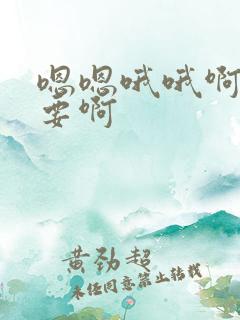 嗯嗯哦哦啊
要啊
黄劲超
未经同意禁止转载